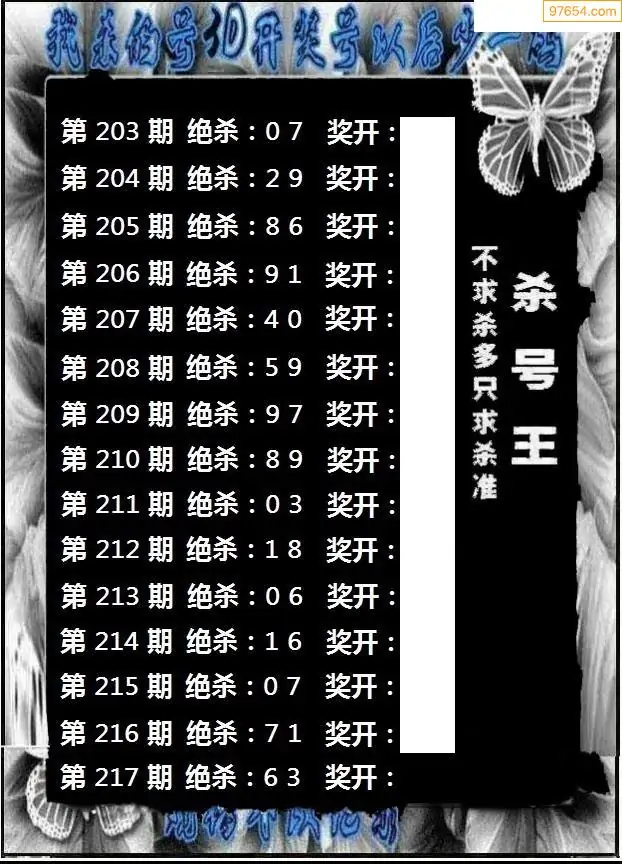 97654.com
第 203 期 绝杀:0 7 奖开:
第 204 期 绝杀:2 9 奖开:
第 205 期 绝杀:8 6 奖开:
第 206 期 绝杀:9 1 奖开:
第 207 期 绝杀:4 0 奖开:
第 208 期 绝杀:5 9 奖开:
第 209 期 绝杀:9 7 奖开:
第 210 期 绝杀:8 9 奖开:
第 211 期 绝杀:0 3 奖开:
第 212 期 绝杀:1 8 奖开:
第 213 期 绝杀:0 6 奖开:
第 214 期 绝杀:1 6 奖开:
第 215 期 绝杀:0 7 奖开:
第 216 期 绝杀:7 1 奖开:
第 217 期 绝杀:6 3 奖开:
杀号王
不求杀多只求杀准